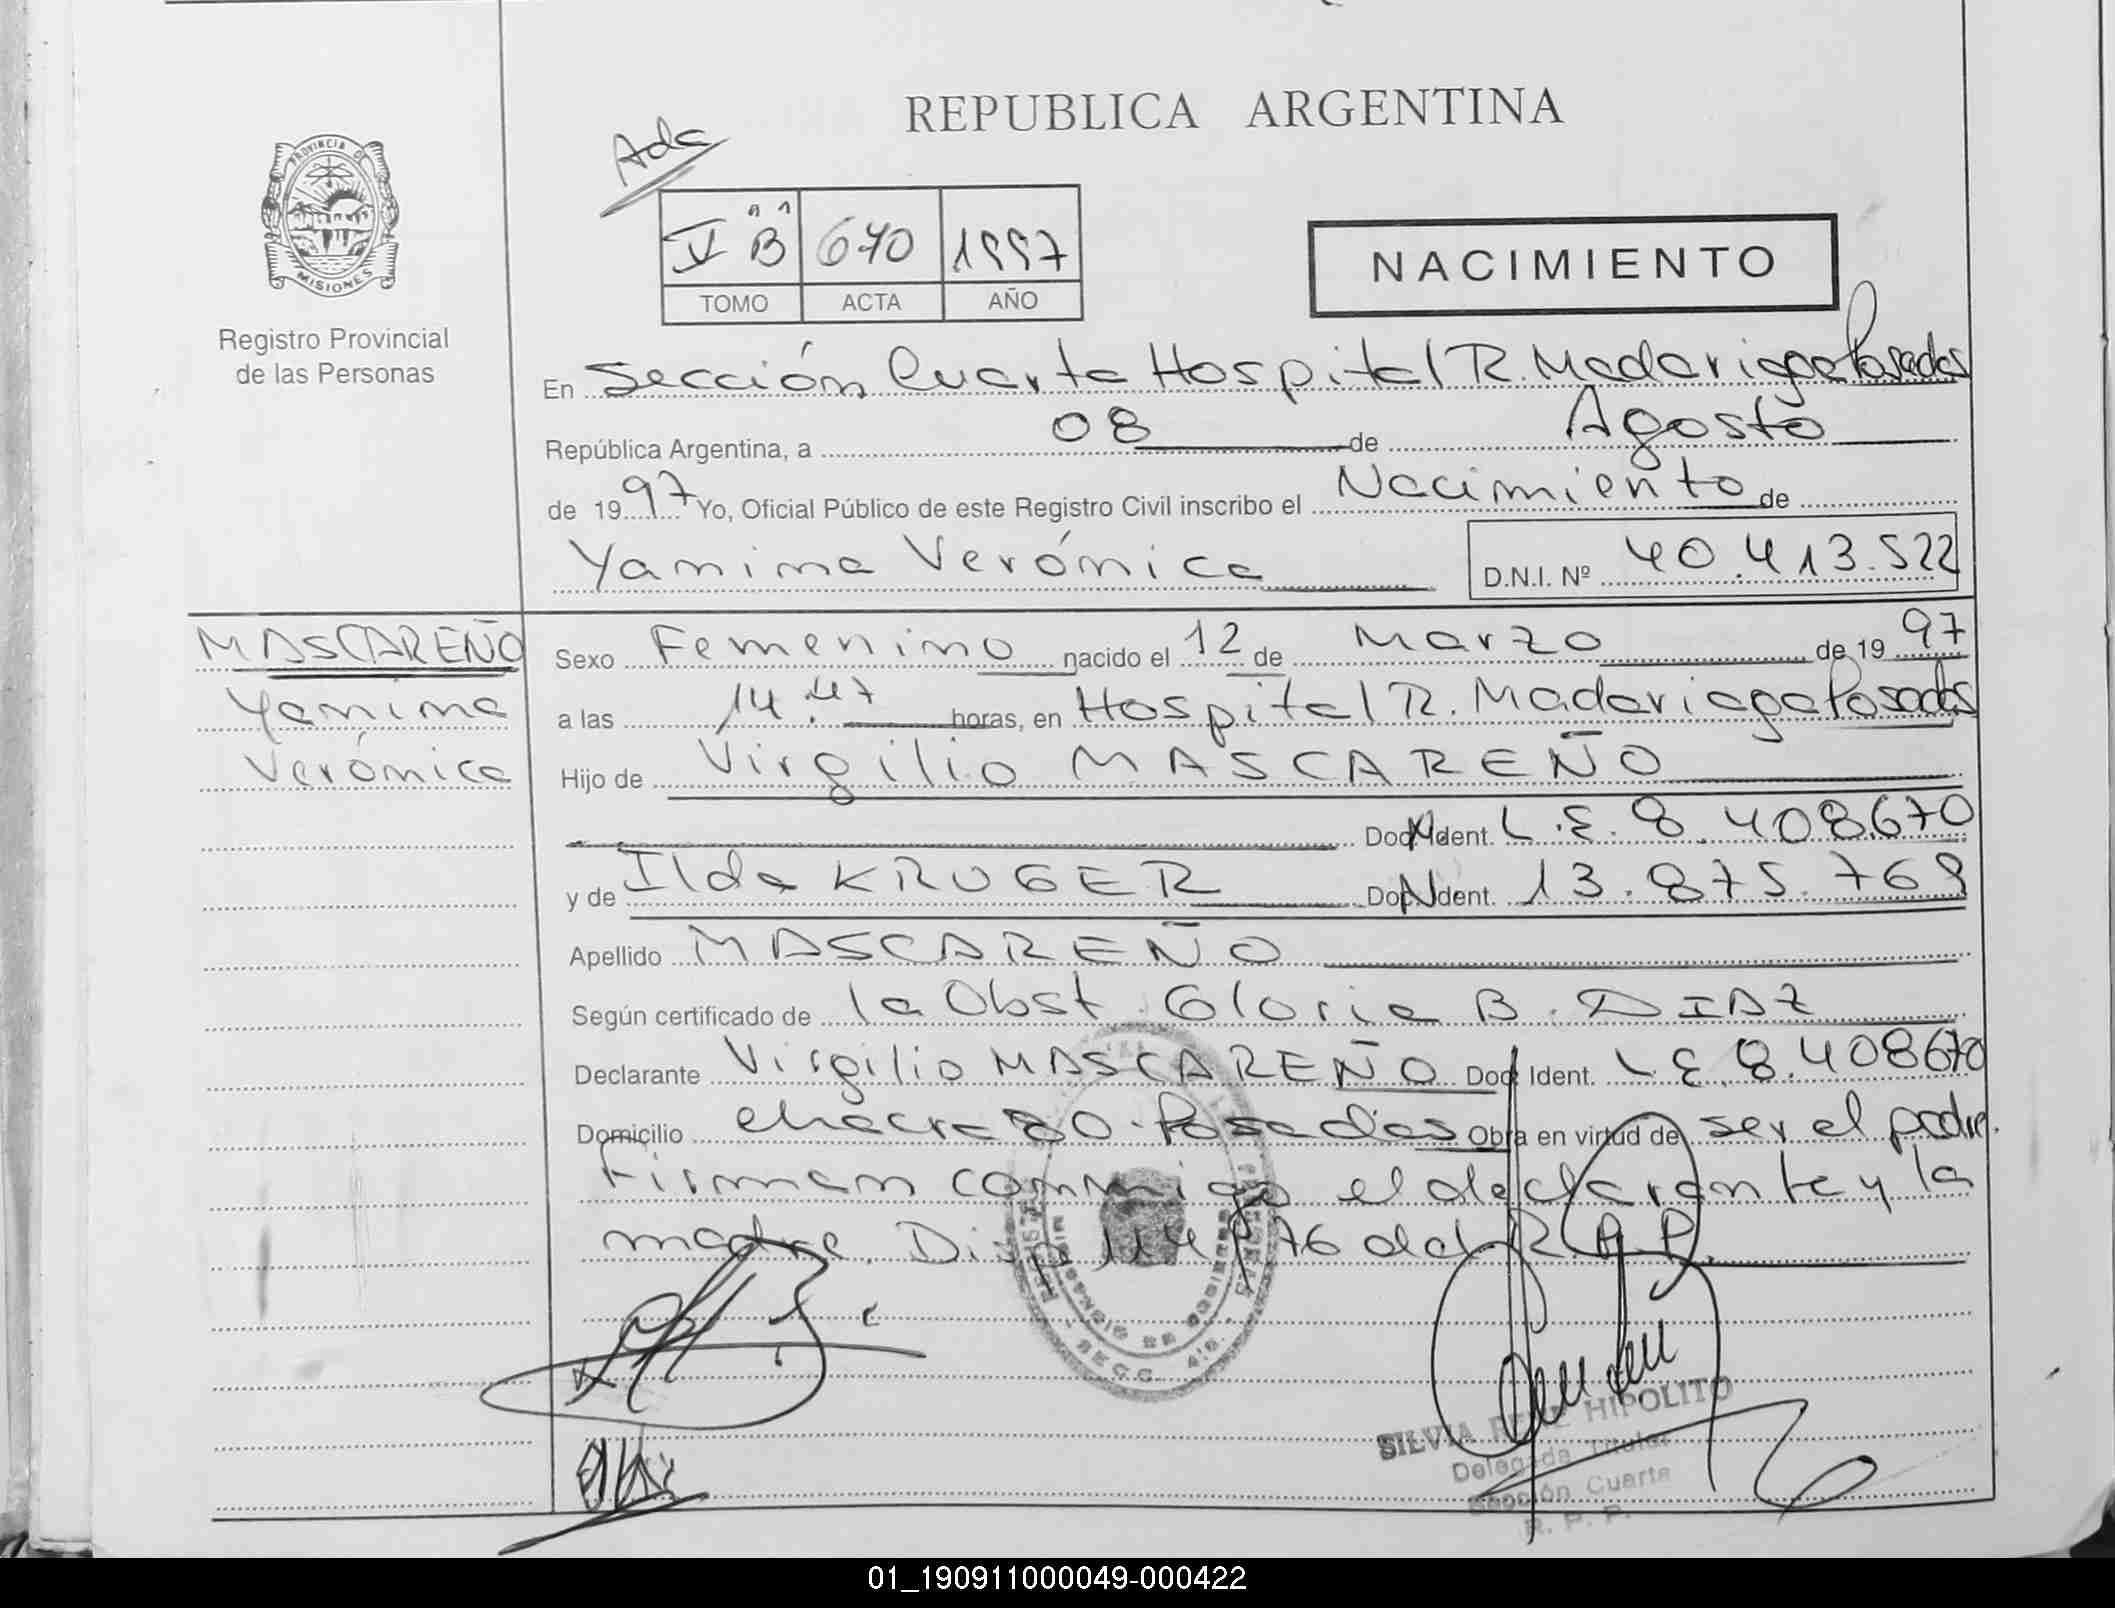 REPUBLICA ARGENTINA
Ada
PROVINCIA DE
MISIONES
V "B" 670 1997
TOMO ACTA AÑO
NACIMIENTO
Registro Provincial
de las Personas
En Sección Cuarta Hospital R. Madariaga Posadas
República Argentina, a 08 de Agosto
de 1997 Yo, Oficial Público de este Registro Civil inscribo el Nacimiento de
Yanina Verónica D.N.I. Nº 40.413.522
MASCAREÑO
Yanina
Verónica
Sexo Femenino nacido el 12 de Marzo de 1997
a las 14.47 horas, en Hospital R. Madariaga Posadas
Hijo de Virgilio MASCAREÑO
Doc. Ident. L.E. 8.408.670
y de Ilda KRUGER Doc. Ident. 13.875.769
Apellido MASCAREÑO
Según certificado de la Obst. Gloria B. DIAZ
Declarante Virgilio MASCAREÑO Doc. Ident. L.E. 8.408670
Domicilio chacra 80. Posadas Obra en virtud de ser el padre.
Firman conmigo el declarante y la
madre. Disp 114/76 del R.P.P.
SECC. 4ta.
SILVIA HIPOLITO
Delegada Titular
Sección Cuarta
R. P. P.
01_190911000049-000422